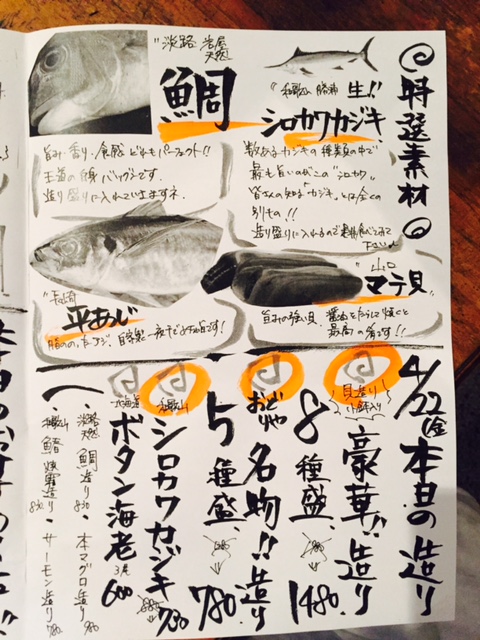 特選素材
"和歌山 勝浦 生!!
シロカワカジキ"
数あるカジキの種類の中で
最も旨いのがこの"シロカワ"
皆さんの知る"カジキ"とは全くの
別もの!!
造り盛りに入れるので是非食べてみて
下さい
"淡路 岩屋
天然
鯛"
旨み・香り・食感 どれもパーフェクト!!
王道の白身 バツグンです。
造り盛りに入れていますネ。
"山口
マテ貝"
旨みの強い貝。醤油をたらして焼くと
最高の肴です!!
"長崎
平あじ"
脂ののったあじ。自家製一夜干しがオススメです!
4/22(金) 本日の造り
貝造り
小鉢入り
豪華!!造り
8種盛 1480
おどりや
名物!!造り
5種盛 780
和歌山
シロカワカジキ 730
北海道
ボタン海老 3尾 600
淡路
天然 鯛造り 830 ・ 本マグロ造り 980
和歌山 鰆 焼霜造り 830 ・ サーモン造り 780